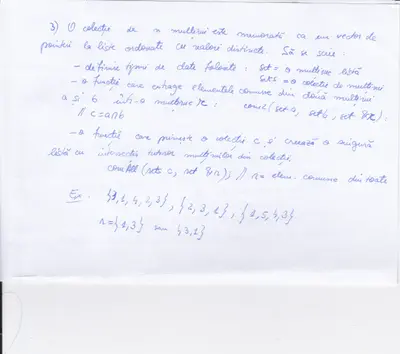 3) O colecție de n mulțimi este memorată ca un vector de
pointeri la liste ordonate cu valori distincte. Să se scrie:
- definire tipuri de date folosite: set = o mulțime listă
sets = o colecție de mulțimi
- o funcție care extrage elementele comune din două mulțimi
a și b într-o mulțime r: com2(set a, set b, set &r);
// c=a∩b
- o funcție care primește o colecție c și creează o singură
listă cu intersecția tuturor mulțimilor din colecție
comAll(sets c, set &r); // r = elem. comune din toate
Ex. {3,1,4,2,3}, {2,3,1}, {1,5,4,3}
r={1,3} sau {3,1}